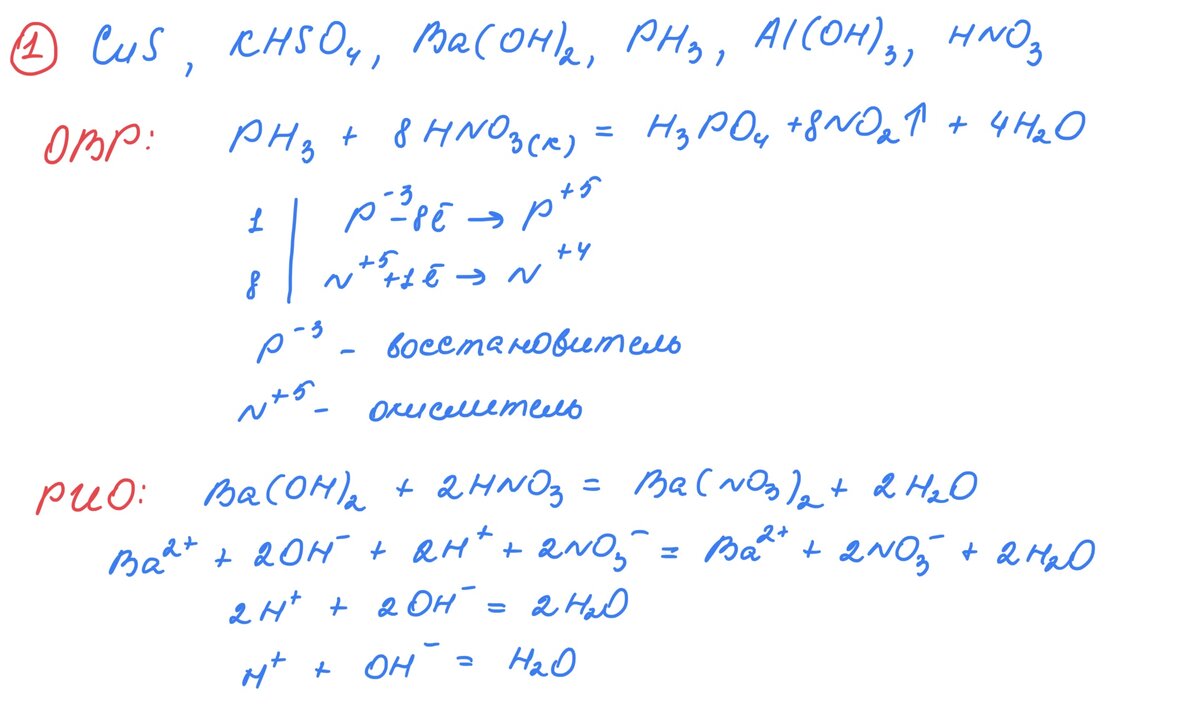 1 CuS, KHSO₄, Ba(OH)₂, PH₃, Al(OH)₃, HNO₃
ОВР: PH₃ + 8HNO₃(к) = H₃PO₄ + 8NO₂↑ + 4H₂O
1 | P⁻³ - 8ē → P⁺⁵
8 | N⁺⁵ + 1ē → N⁺⁴
P⁻³ - восстановитель
N⁺⁵ - окислитель
РИО: Ba(OH)₂ + 2HNO₃ = Ba(NO₃)₂ + 2H₂O
Ba²⁺ + 2OH⁻ + 2H⁺ + 2NO₃⁻ = Ba²⁺ + 2NO₃⁻ + 2H₂O
2H⁺ + 2OH⁻ = 2H₂O
H⁺ + OH⁻ = H₂O